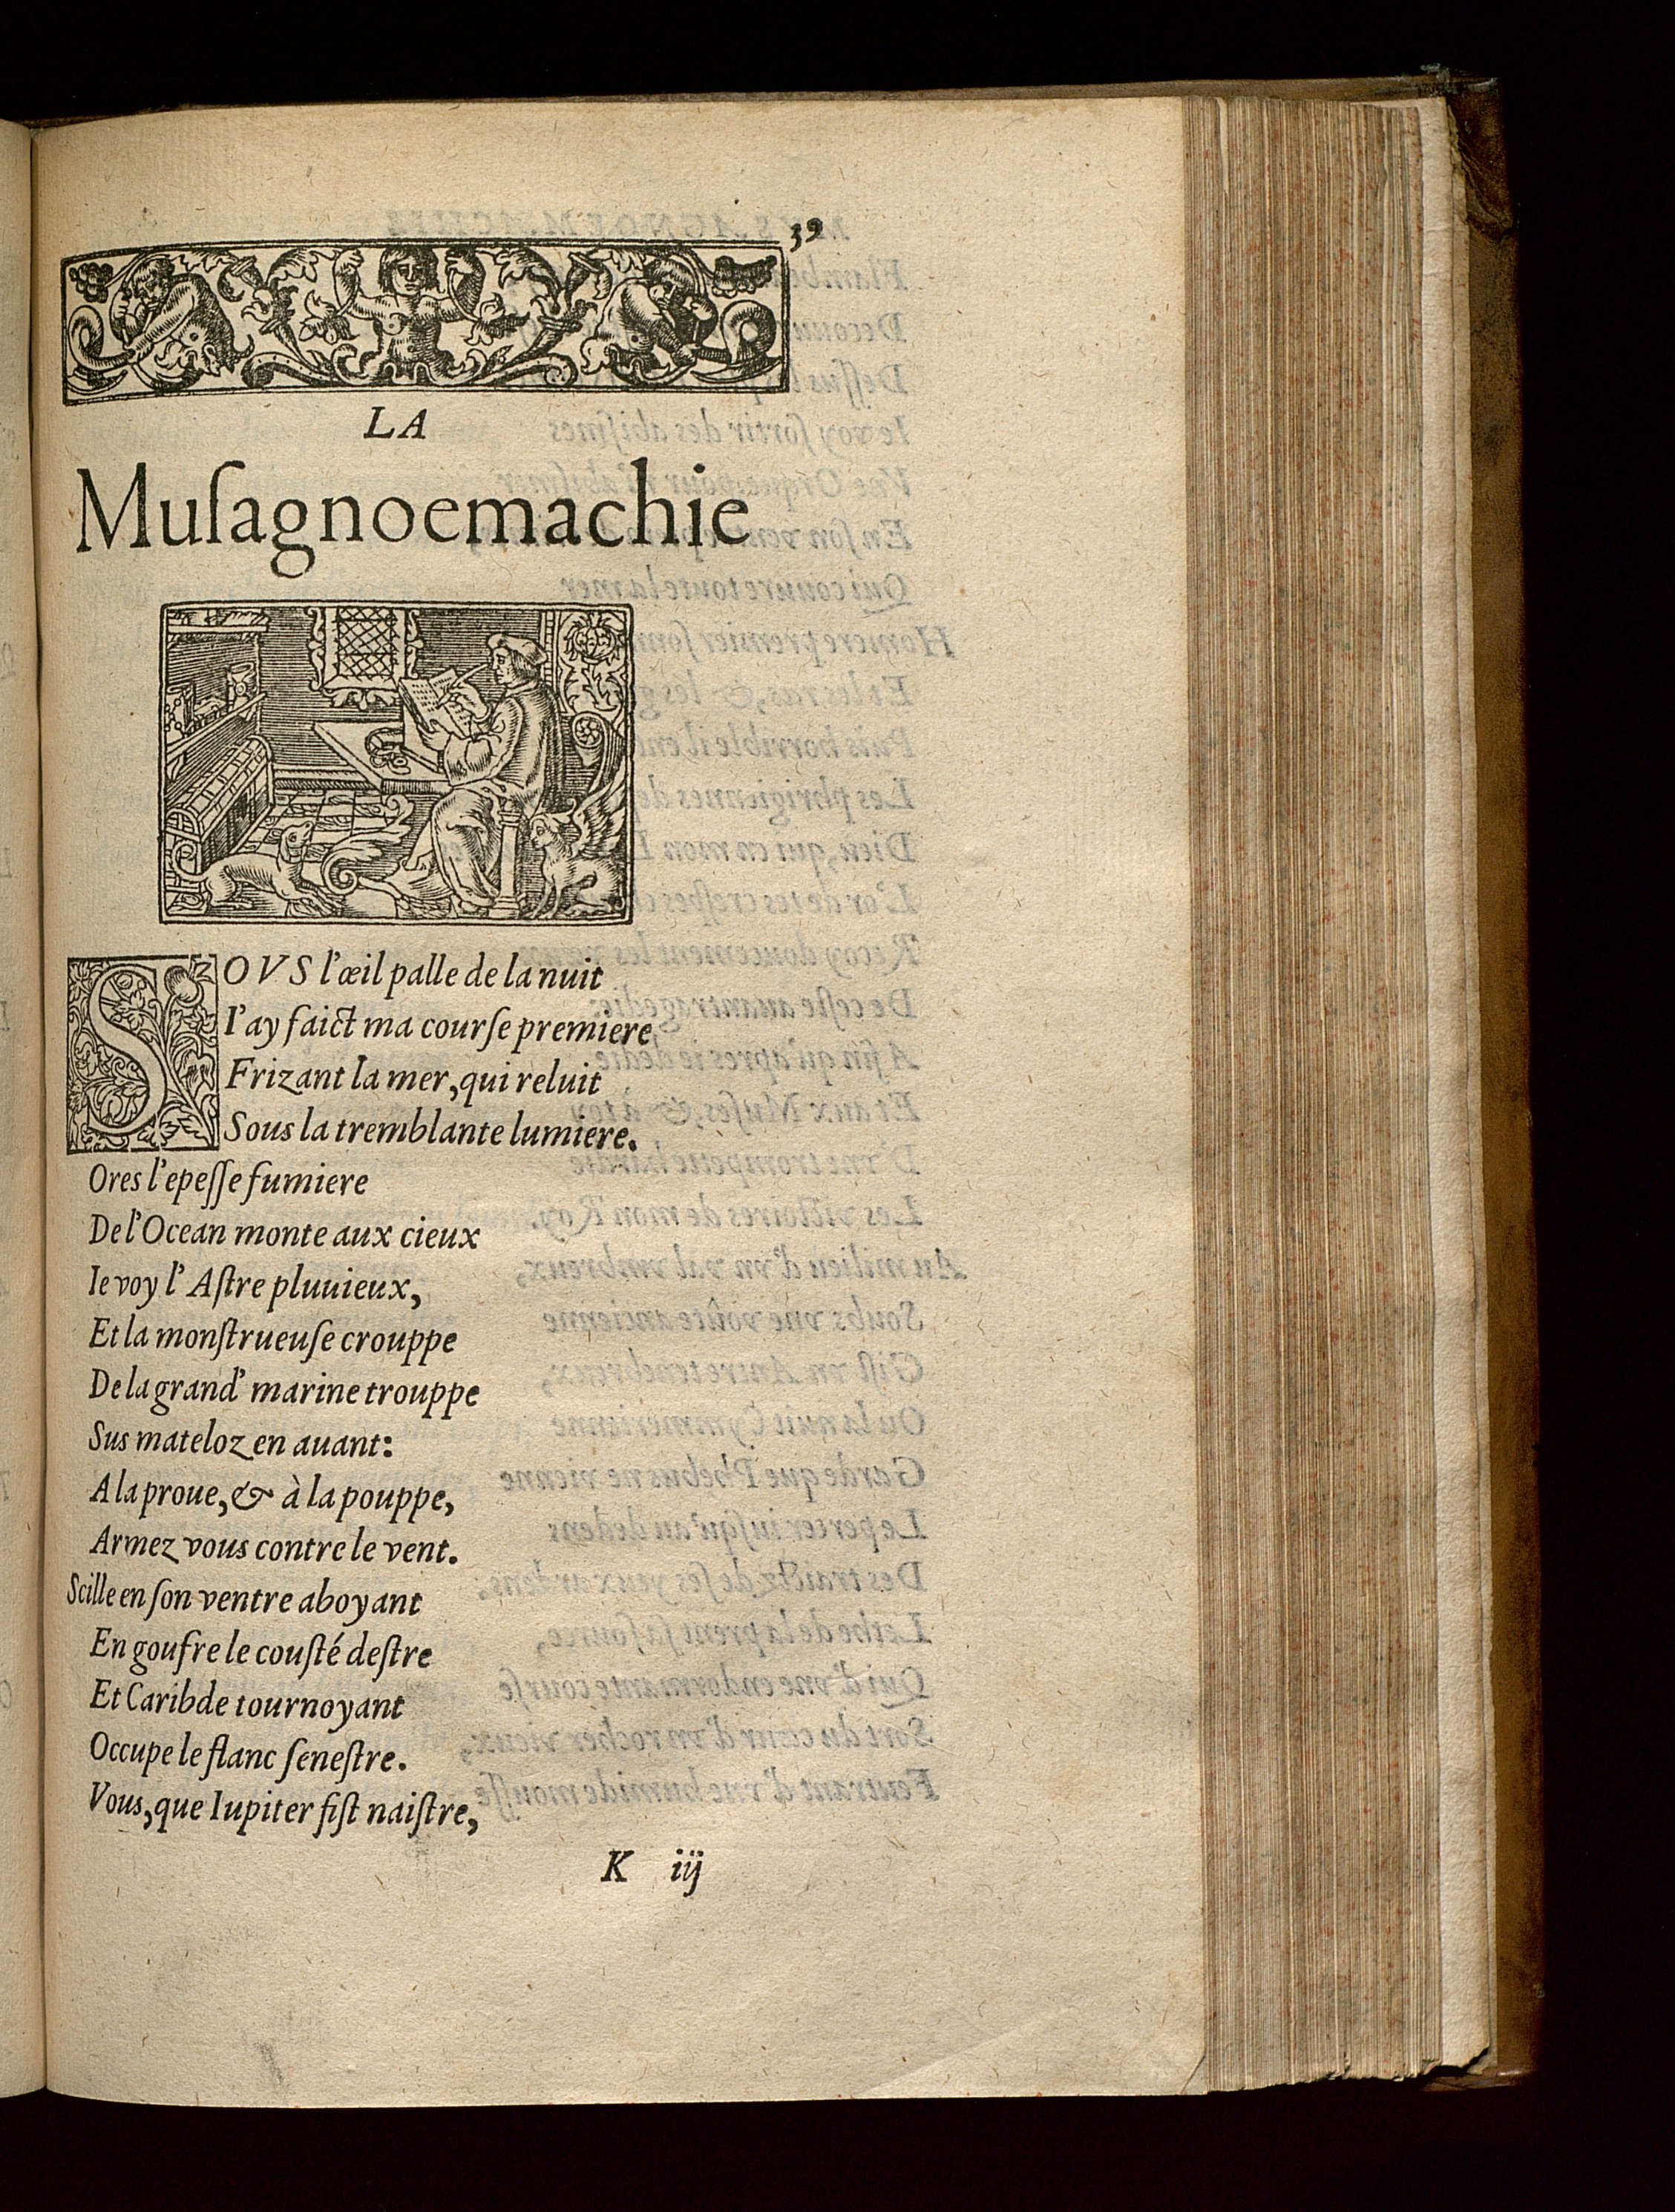 39
LA
Muſagnoemachie
SOVS l'œil palle de la nuit
I'ay faict ma courſe premiere,
Frizant la mer, qui reluit
Sous la tremblante lumiere.
Ores l'epeſſe fumiere
De l'Ocean monte aux cieux
Ie voy l'Aſtre pluuieux,
Et la monſtrueuſe crouppe
De la grand' marine trouppe
Sus mateloz en auant:
A la proue, & à la pouppe,
Armez vous contre le vent.
Scille en ſon ventre aboyant
En goufre le couſté deſtre
Et Caribde tournoyant
Occupe le flanc ſeneſtre.
Vous, que Iupiter fiſt naiſtre,
K iij